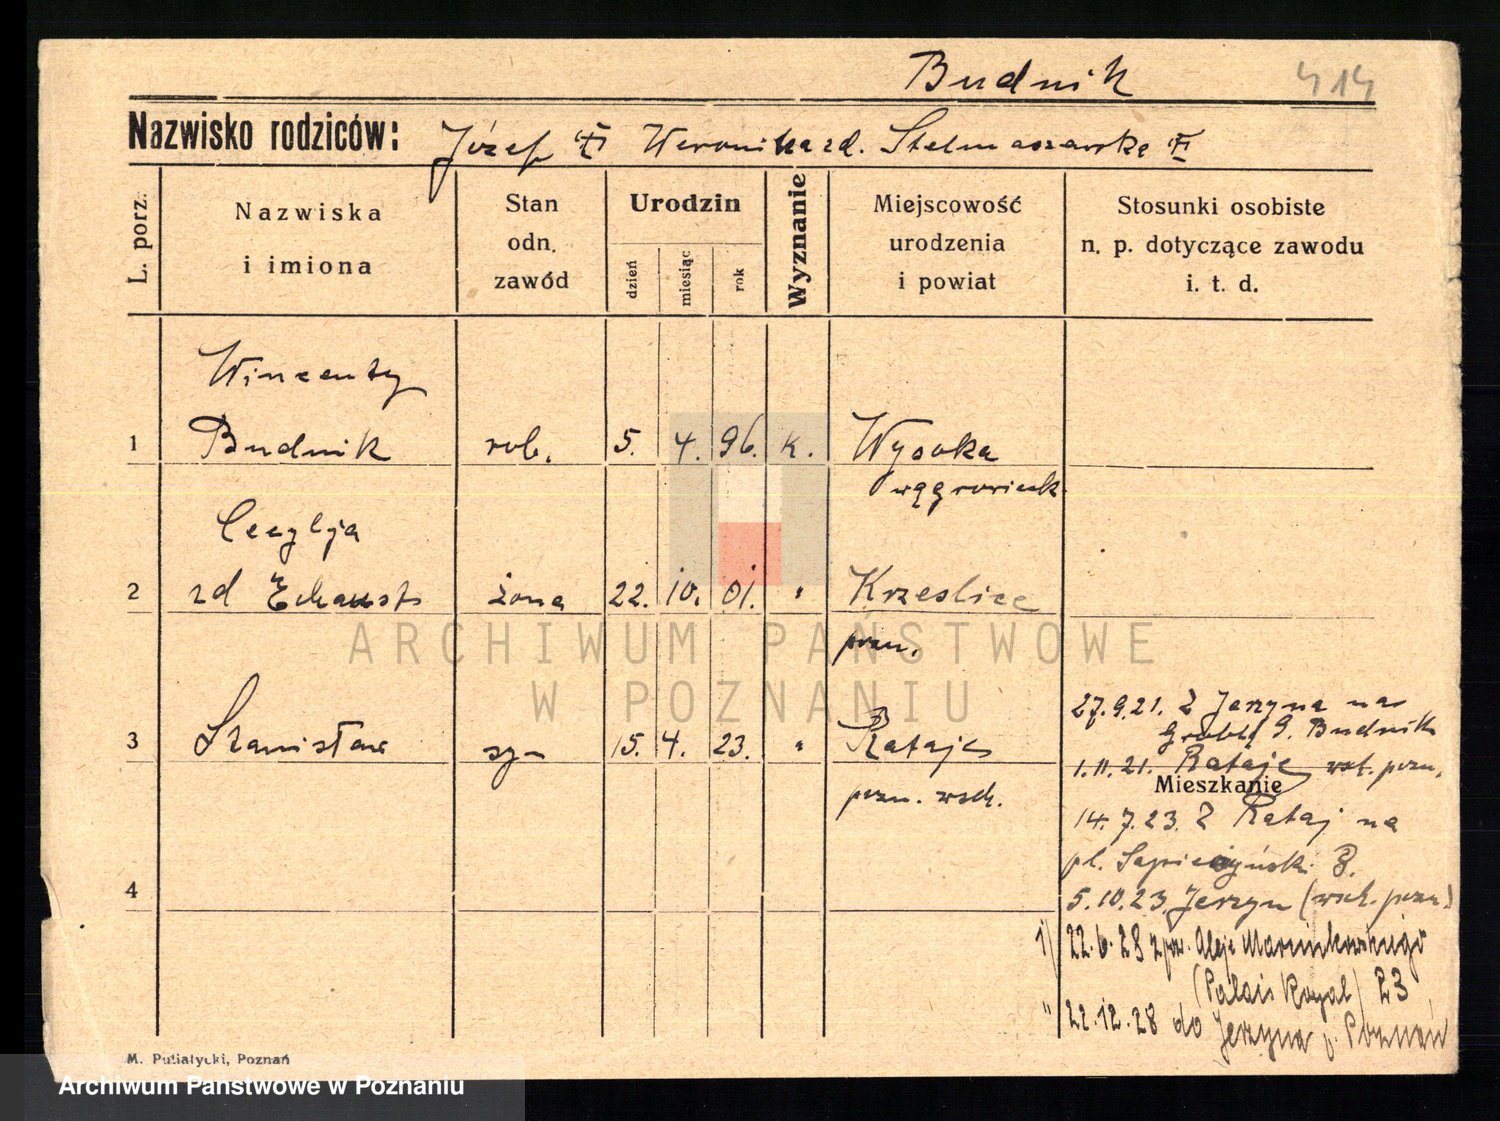 Budnik 414
Nazwisko rodziców: Józef Weronika zd. Stelmaszewska
L. porz. Nazwiska i imiona Stan odn. zawód Urodzin dzień miesiąc rok Wyznanie Miejscowość urodzenia i powiat Stosunki osobiste n. p. dotyczące zawodu i. t. d.
Wincenty
1 Budnik rob. 5. 4. 96. k. Wysoka
wągrowieck.
Cecylja
2 zd żona 22. 10. 01. " Krześlice
pozn.
3 Stanisław syn 15. 4. 23. " Rataje
pozn. wsch.
27.9.21. Z Jerzyna na
Groblę 9. Budnik
1.11.21. Rataje wst. pozn.
Mieszkanie
14.7.23. Z Rataj na
pl. Sapieżyński 8.
4
5.10.23 Jerzyn (wsch. pozn.)
1) 22.6.28 z pow. Aleje Marcinkowskiego
(Palais Royal) 23
" 22.12.28 do Jerzyna p. Poznań
M. Putiatycki, Poznań
ARCHIWUM PAŃSTWOWE
W POZNANIU
Archiwum Państwowe w Poznaniu